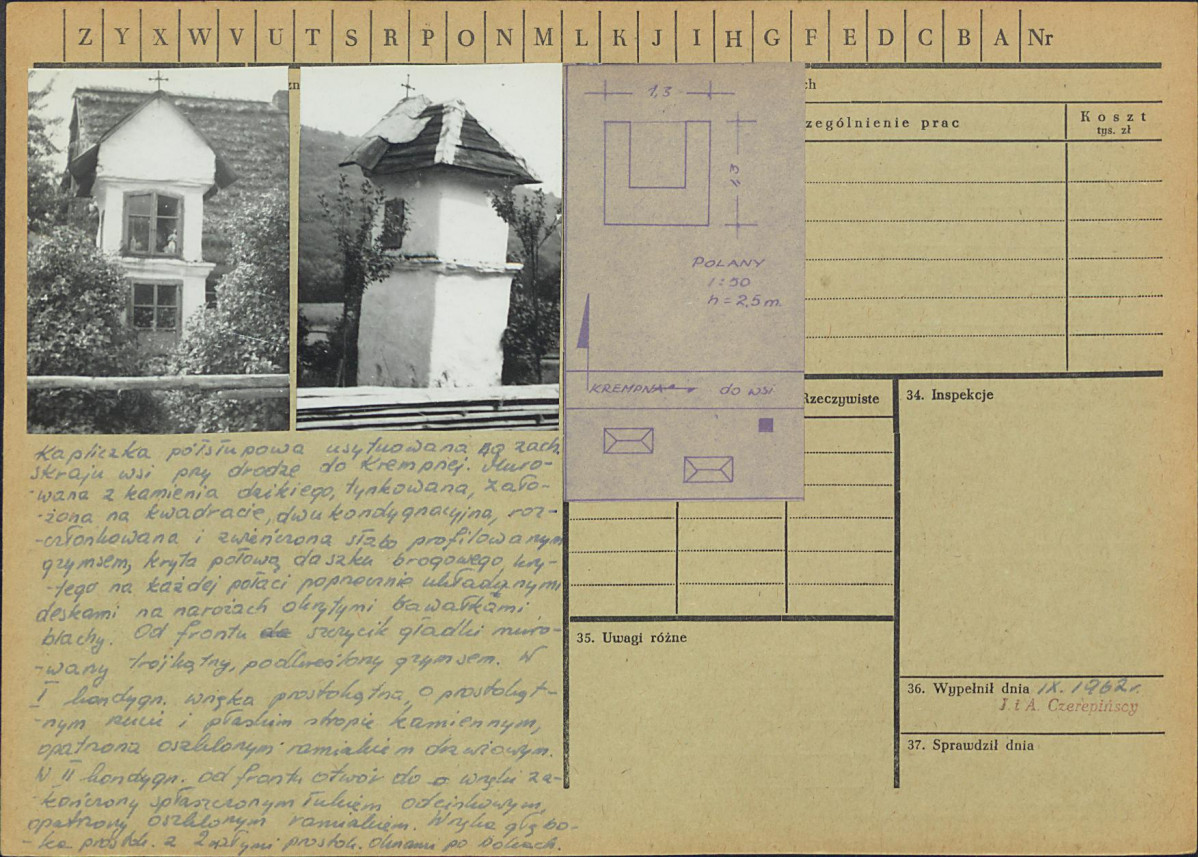 Z Y X W V U T S R P O N M L K J I H G F E D C B A Nr
zn
ch
zególnienie prac
Koszt
tys. zł
1,3
1,3
POLANY
1:50
h = 2,5 m.
KREMPNA
do wsi
Rzeczywiste
34. Inspekcje
Kapliczka półsłupowa usytuowana na zach.
skraju wsi przy drodze do Krempnej. Muro-
-wana z kamienia dzikiego, tynkowana, zało-
-żona na kwadracie, dwukondygnacyjna, roz-
-członkowana i zwieńczona słabo profilowanym
gzymsem, kryta połową daszku brogowego, kry-
-tego na każdej połaci poprzecznie układanymi
deskami na narożach okrytymi kawałkami
blachy. Od frontu szczycik gładki muro-
-wany trójkątny, podkreślony gzymsem. W
I kondygn. wnęka prostokątna, o prostokąt-
-nym rzucie i płaskim stropie kamiennym,
opatrzona oszklonym ramiakiem drzwiowym.
W II kondygn. od frontu otwór do wnęki za-
-kończony spłaszczonym łukiem odcinkowym,
opatrzony oszklonym ramiakiem. Wnęka głębo-
-ka prostok. z 2 małymi prostok. oknami po bokach.
35. Uwagi różne
36. Wypełnił dnia IX. 1962 r.
J. i A. Czerepińscy
37. Sprawdził dnia